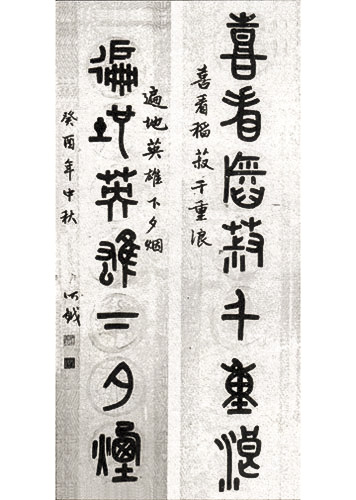 喜看稻菽千重浪
喜看稻菽千重浪
遍地英雄下夕烟
遍地英雄下夕烟
癸酉年中秋